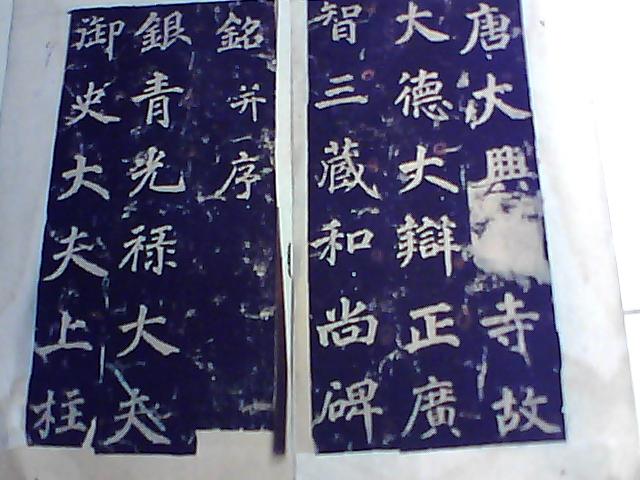 唐大興寺故
大德大辯正廣
智三藏和尚碑
銘并序
銀青光禄大夫
御史大夫上柱